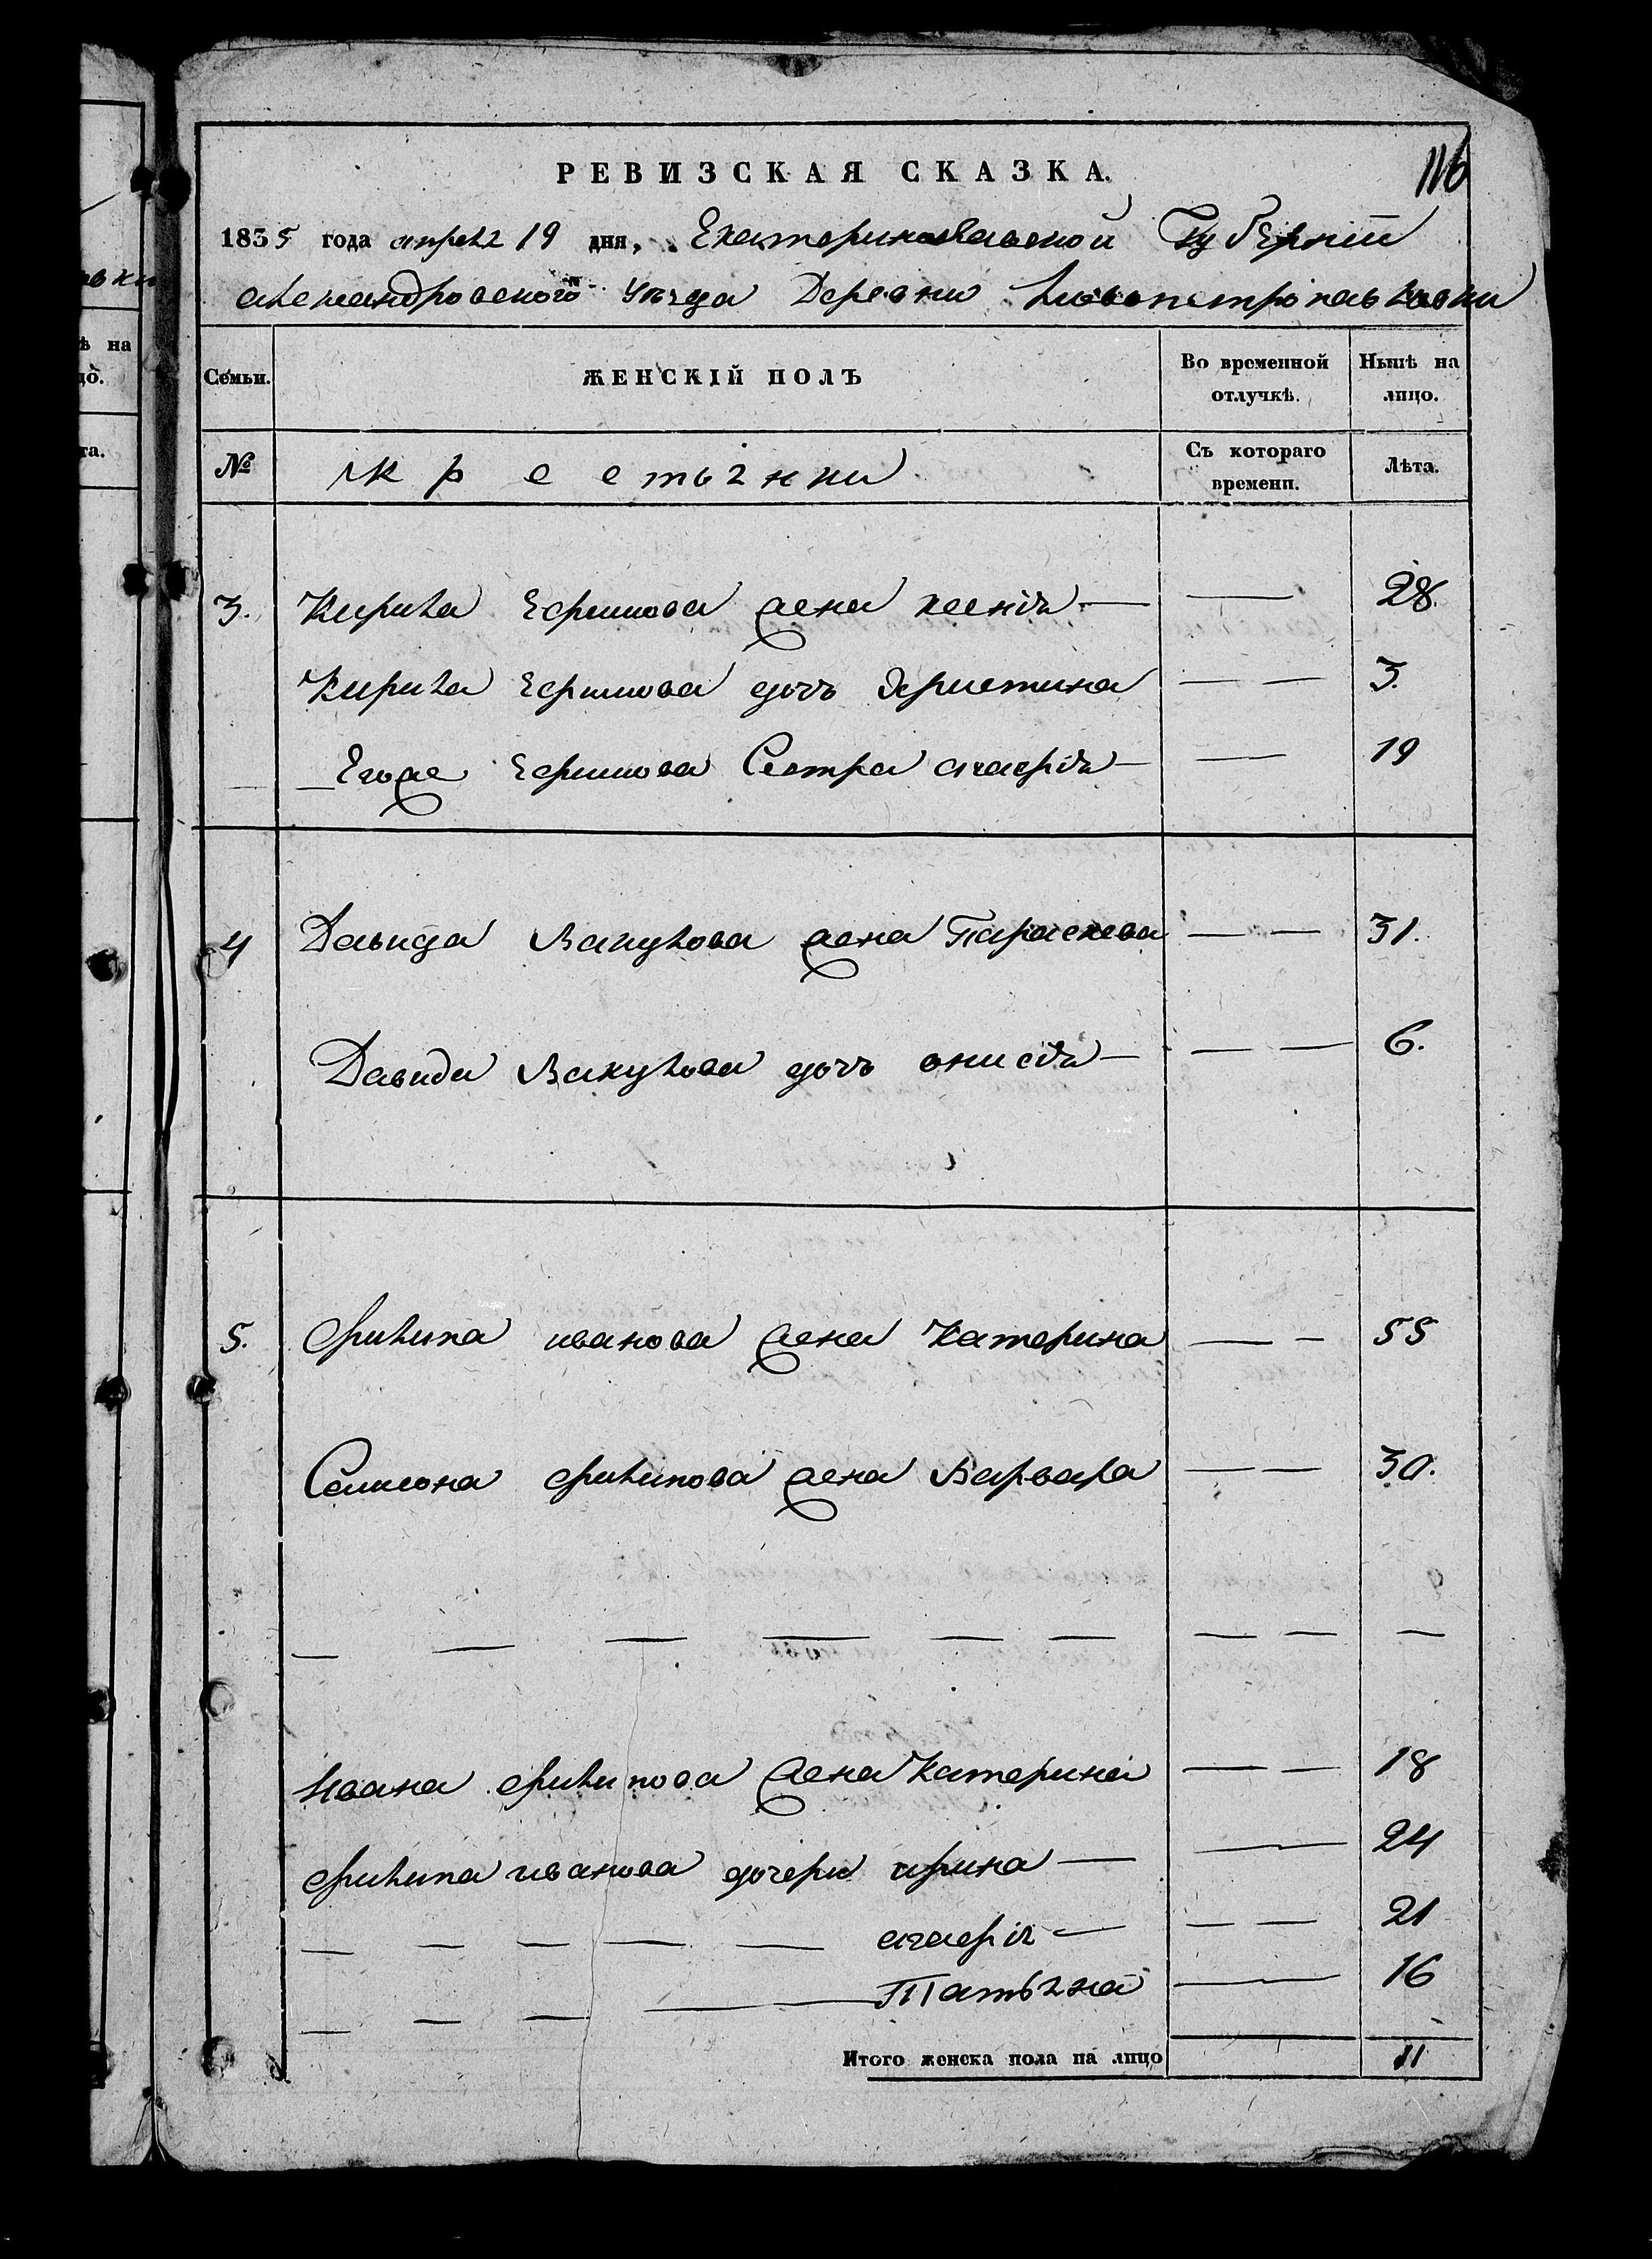 116
РЕВИЗСКАЯ СКАЗКА.
1835 года апреля 19 дня, Екатеринославской Губерніи
александровского уѣзда Деревни Новопетропавловки
вки
ѣ на
цо.
та.
Семьи. ЖЕНСКІЙ ПОЛЪ Во временной отлучкѣ. Нынѣ на лицо.
№ крестьянки Съ котораго времени. Лѣта.
3. Кирила Ефимова жена ксенія — — 28.
Кирила Ефимова дочъ Христина — — 3.
— — Егоже Ефимова Сестра марія — — 19
4 Давида Вакулова жена Параскева — — 31.
Давида Вакулова дочъ онисія — — — 6.
5. филипа иванова жена Катерина — — 55
Самсона филипова жена Варвара — — 30.
— — — — — — — — —
Ивана филипова жена Катерина — — 18
филипа иванова дочери ирина — — 24
— — — — — марія — — — 21
— — — — Татьяна — 16
Итого женска пола на лицо 11